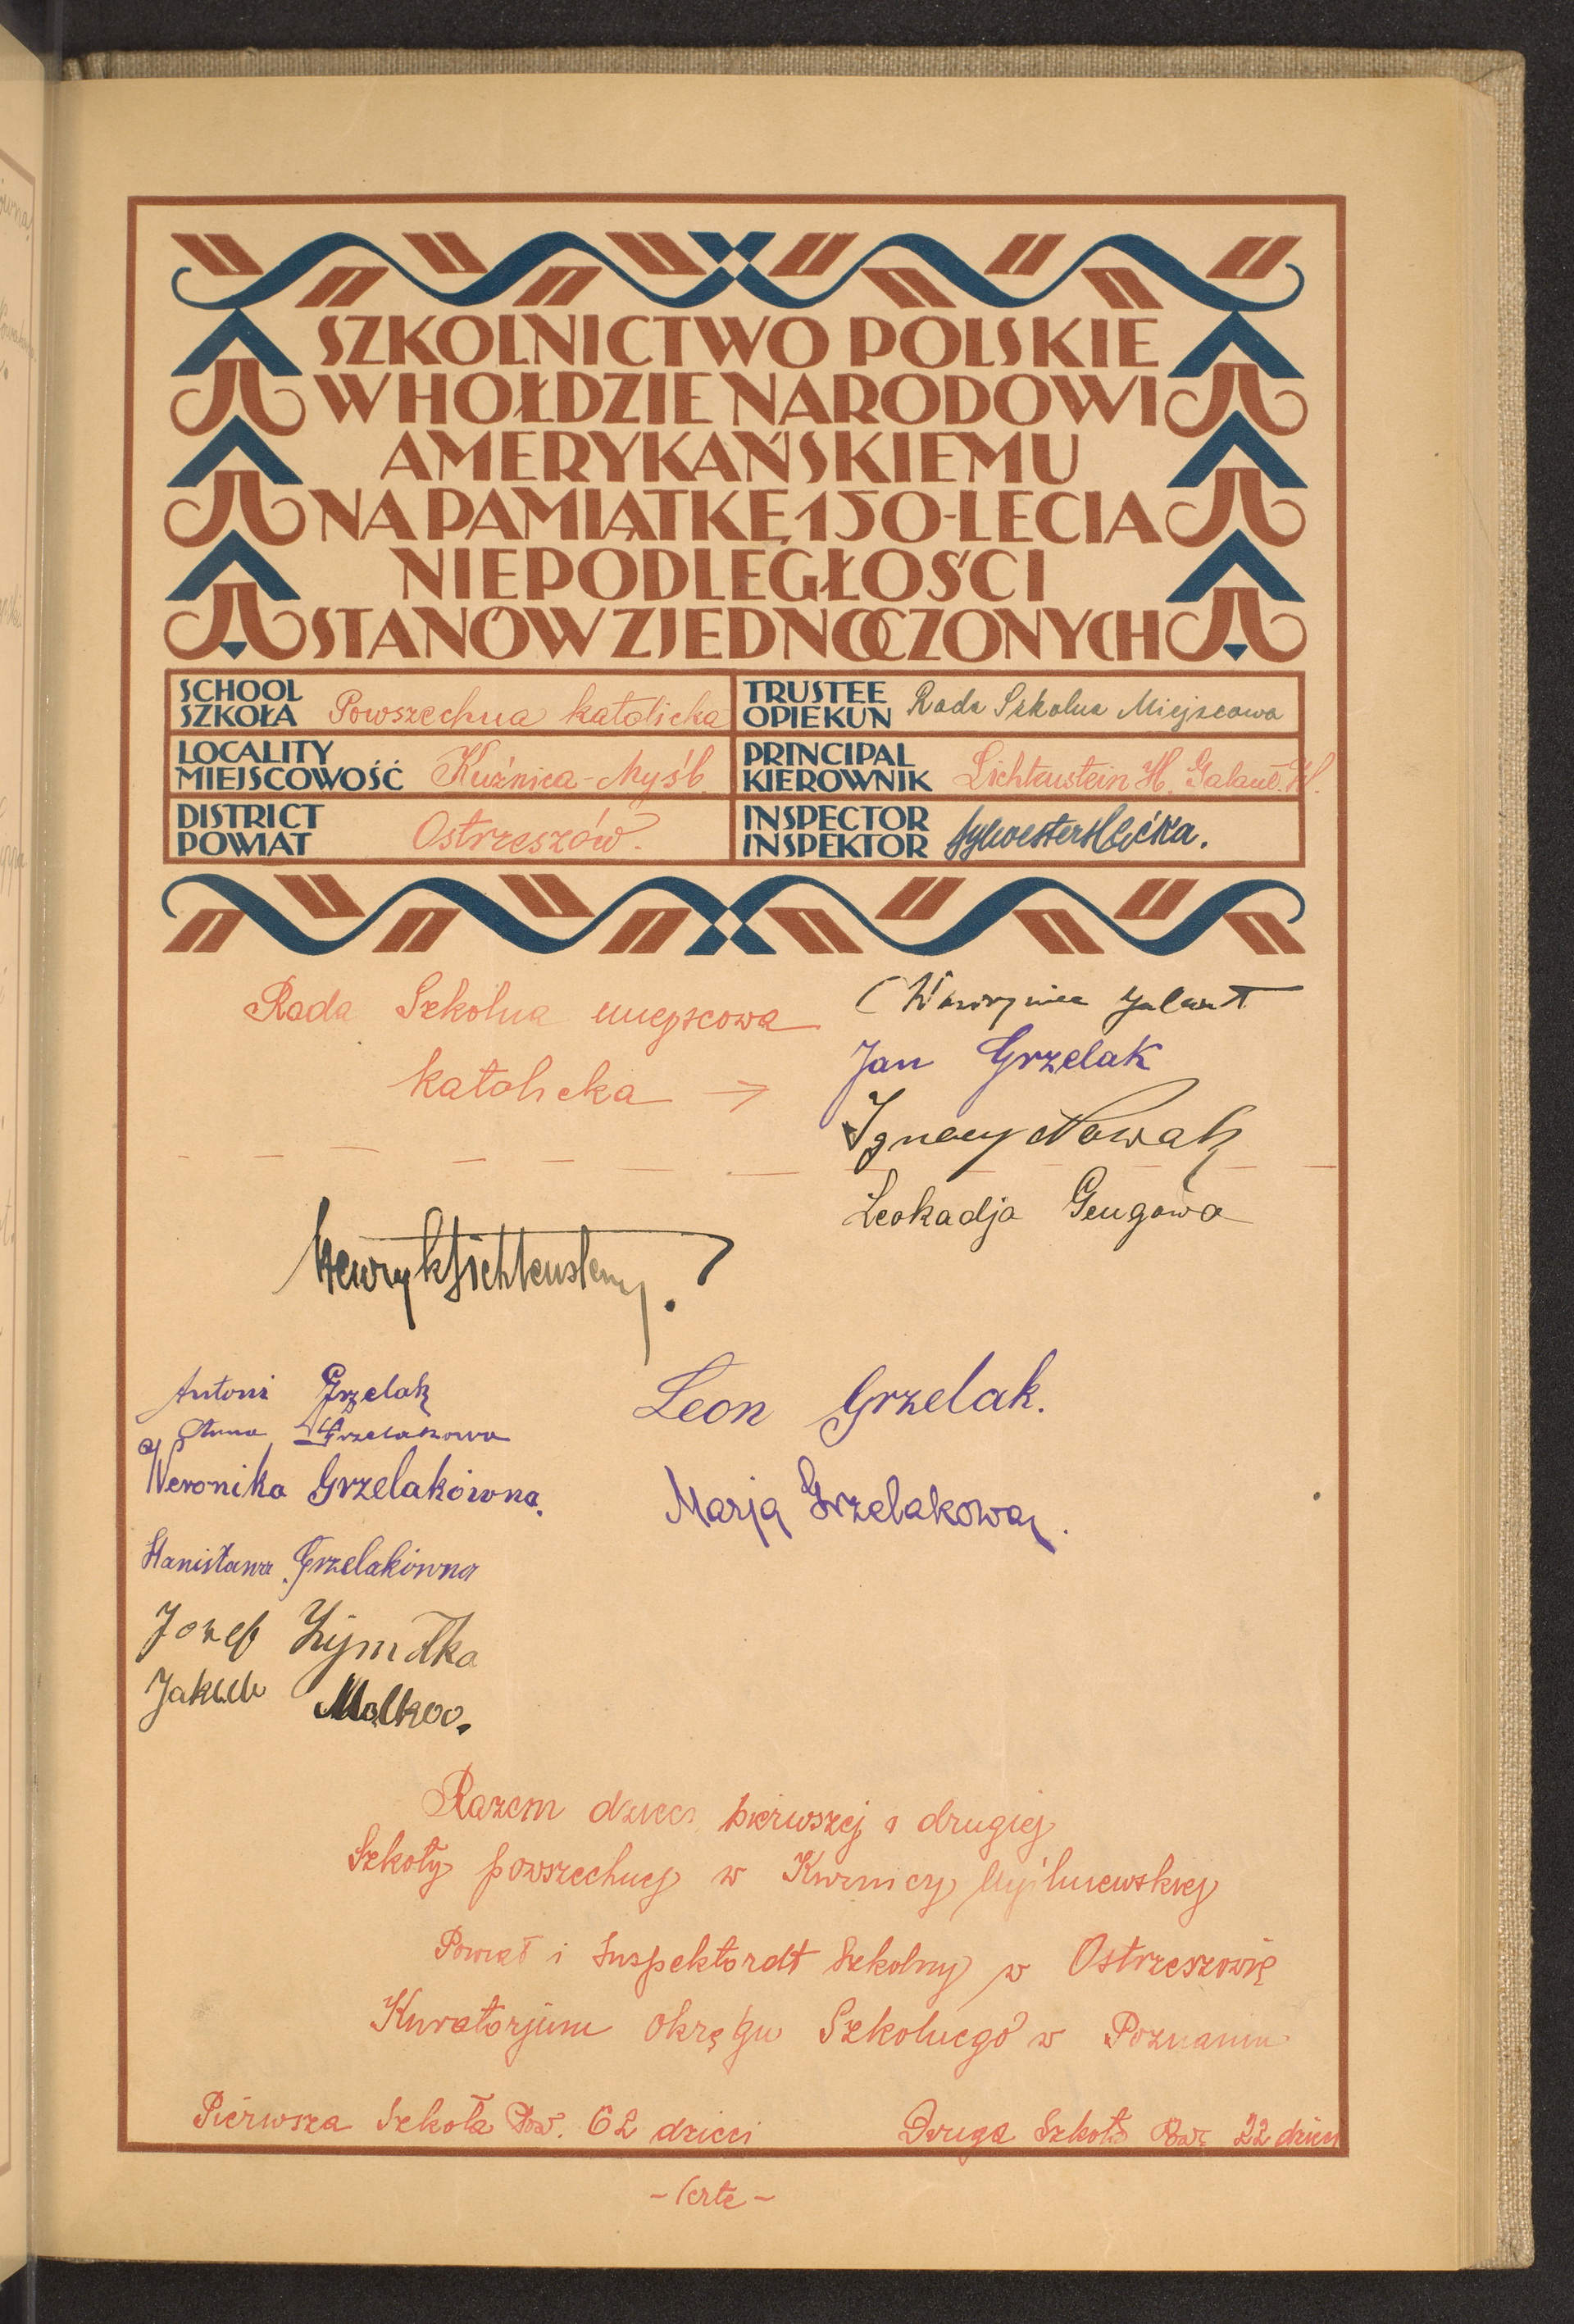 SZKOLNICTWO POLSKIE
W HOŁDZIE NARODOWI
AMERYKAŃSKIEMU
NA PAMIĄTKĘ 150-LECIA
NIEPODLEGŁOŚCI
STANÓW ZJEDNOCZONYCH
SCHOOL
SZKOŁA Powszechna katolicka
TRUSTEE
OPIEKUN Rada Szkolna Miejscowa
LOCALITY
MIEJSCOWOŚĆ Kuźnica-Myśl.
PRINCIPAL
KIEROWNIK Lichtenstein H. Galant. W.
DISTRICT
POWIAT Ostrzeszów.
INSPECTOR
INSPEKTOR Sylwester
Rada Szkolna miejscowa
katolicka →
Wawrzyniec Galant
Jan Grzelak
Ignacy Nowak
Leokadja Gengowa
Henryk Lichtenstein
Antoni Grzelak
Anna Grzelakowa
Weronika Grzelakówna.
Stanisława Grzelakówna
Jozef
Jakub
Leon Grzelak.
Marja Grzelakowa.
Razem dzieci pierwszej i drugiej
Szkoły powszechnej w Kuźnicy Myślniewskiej
Powiat i Inspektorat Szkolny w Ostrzeszowie
Kuratorjum Okręgu Szkolnego w Poznaniu
Pierwsza Szkoła Pow. 62 dzieci
Druga Szkoła Pow. 22 dzieci